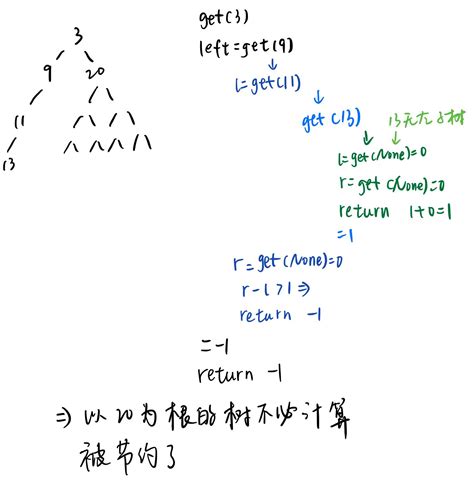 3
9 20
11
13
get(3)
left=get(9)
↓
l=get(11)
↓
get(13) 13无左子树
↓ ↓
l=get(None)=0
r=get(None)=0
return 1+0=1
=1
r=get(None)=0
r-l>1 ⇒
return -1
=-1
return -1
⇒ 以20为根的树不必计算
被节约了